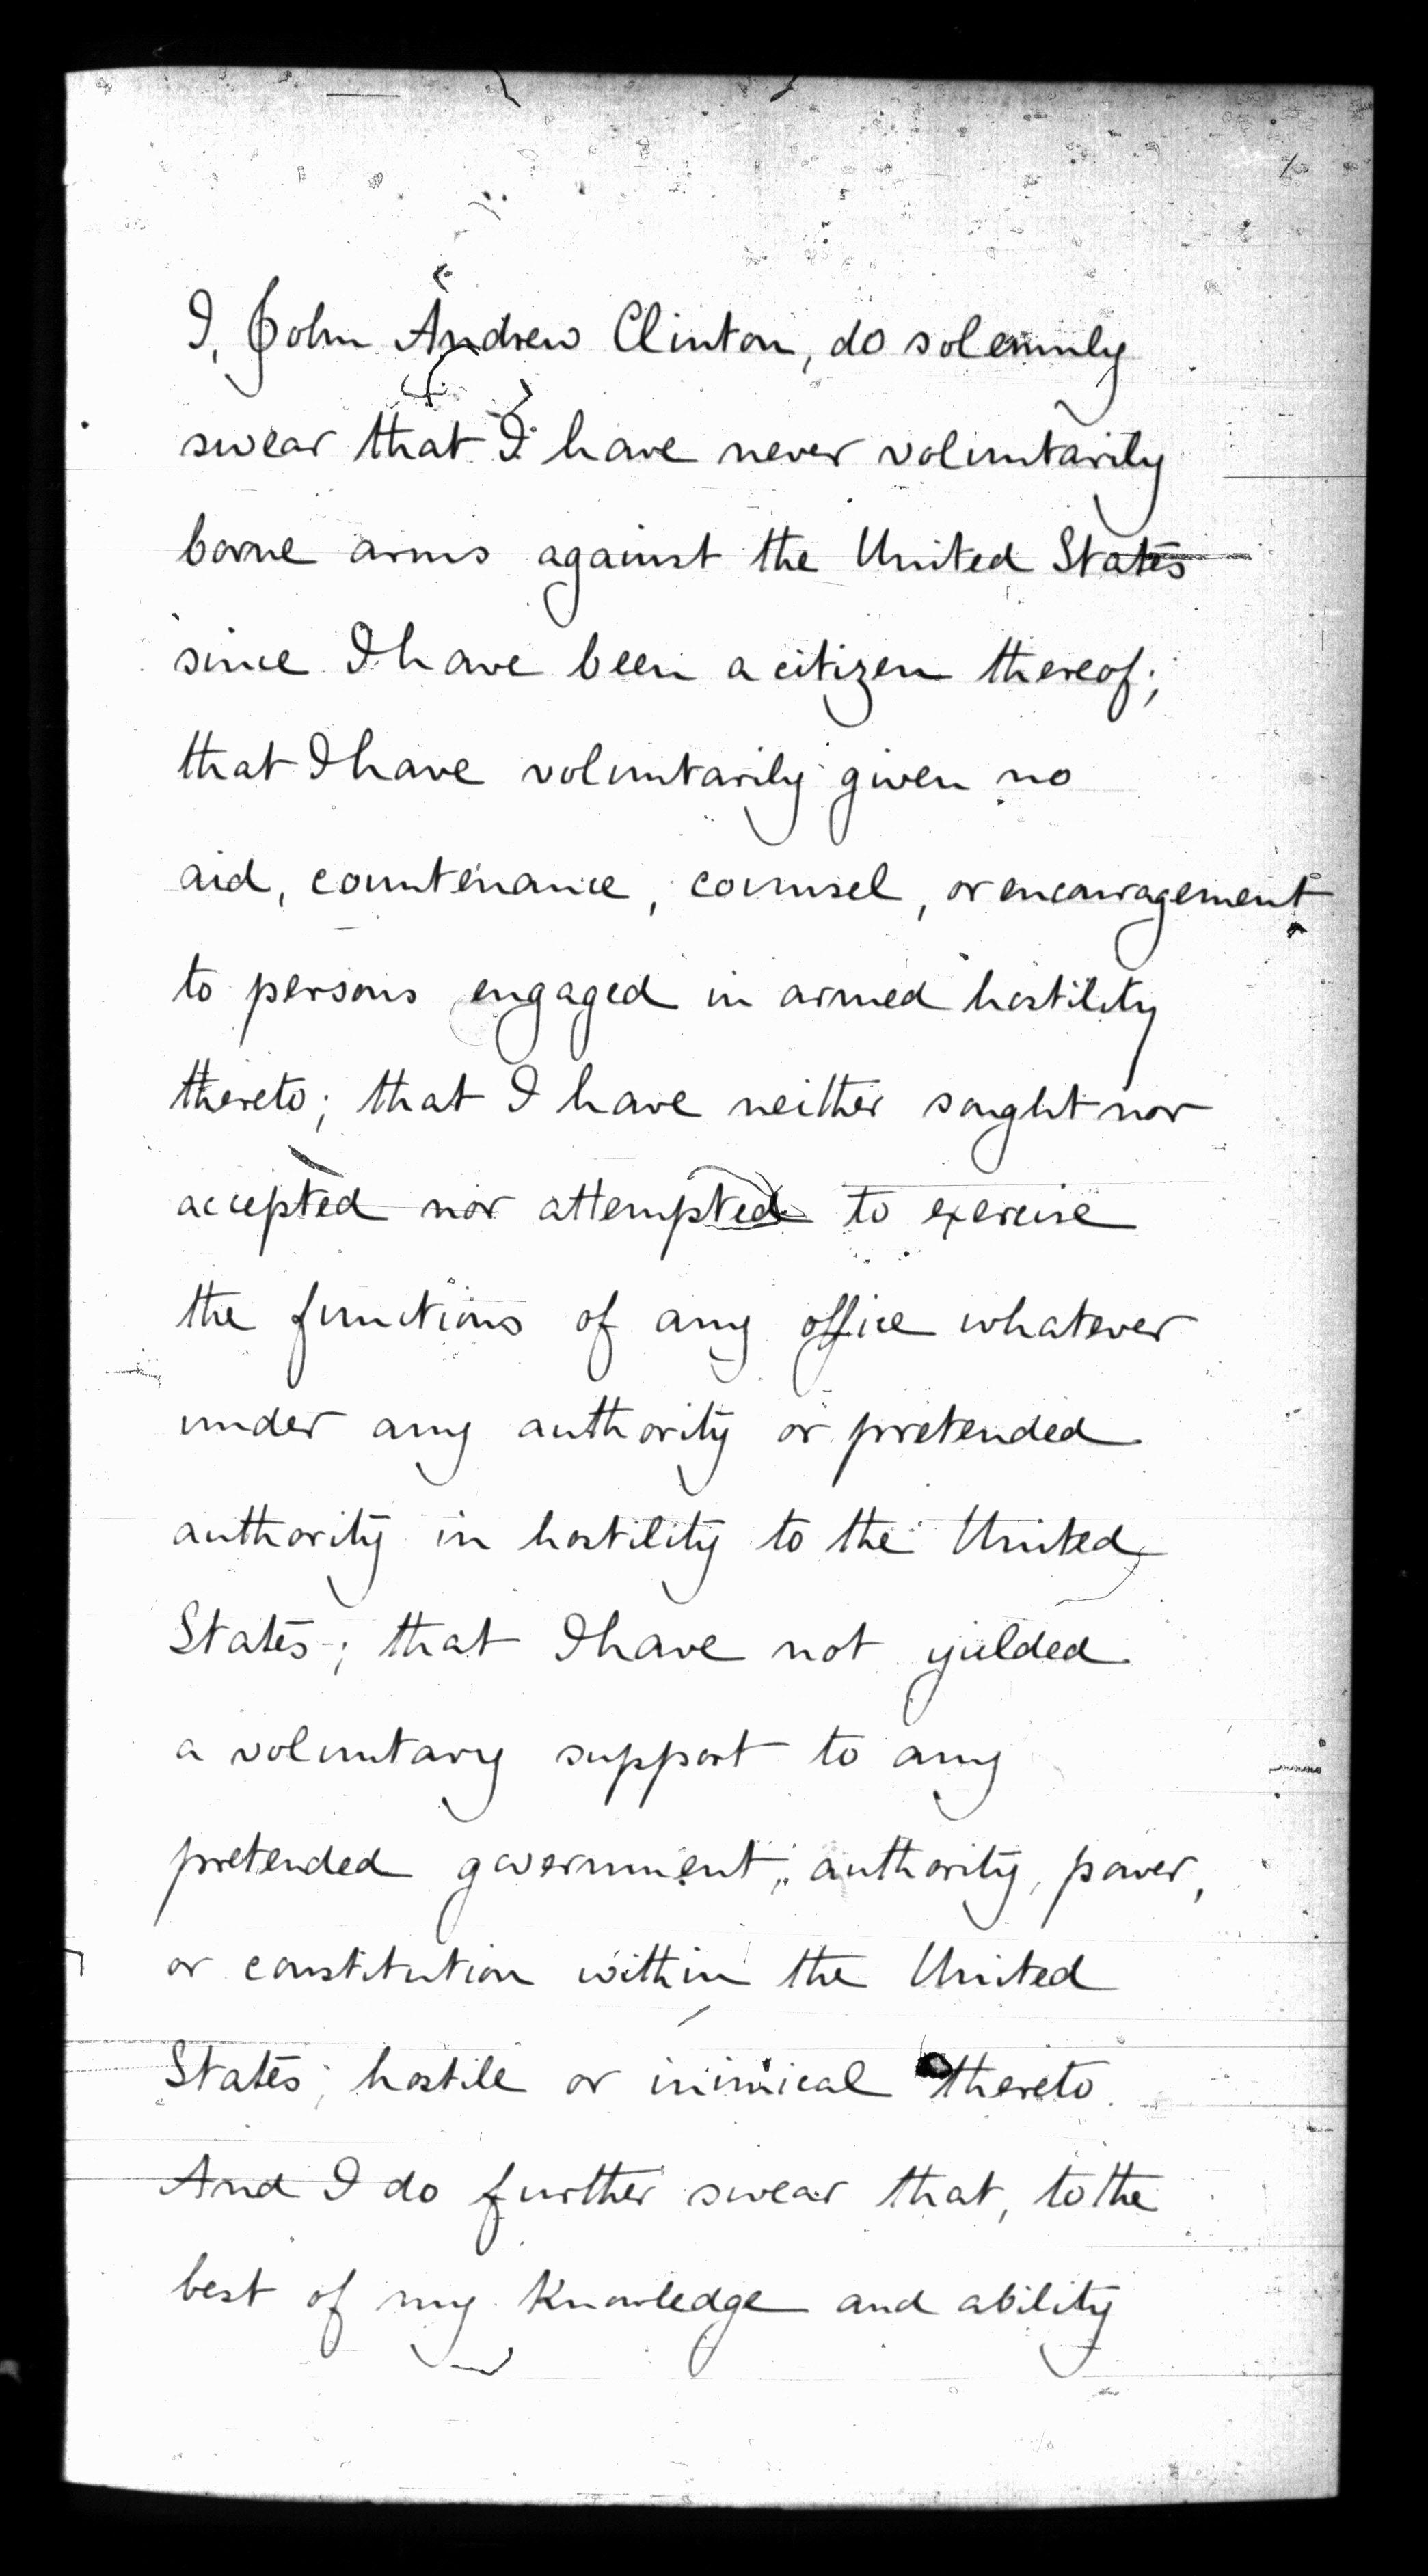 I, John Andrew Clinton, do solemnly
swear that I have never voluntarily
borne arms against the United States
since I have been a citizen thereof;
that I have voluntarily given no
aid, countenance, counsel, or encouragement
to persons engaged in armed hostility
thereto; that I have neither sought nor
accepted nor attempted to exercise
the functions of any office whatever
under any authority or pretended
authority in hostility to the United
States; that I have not yielded
a voluntary support to any
pretended government, authority, power,
or constitution within the United
States, hostile or inimical thereto.
And I do further swear that, to the
best of my knowledge and ability